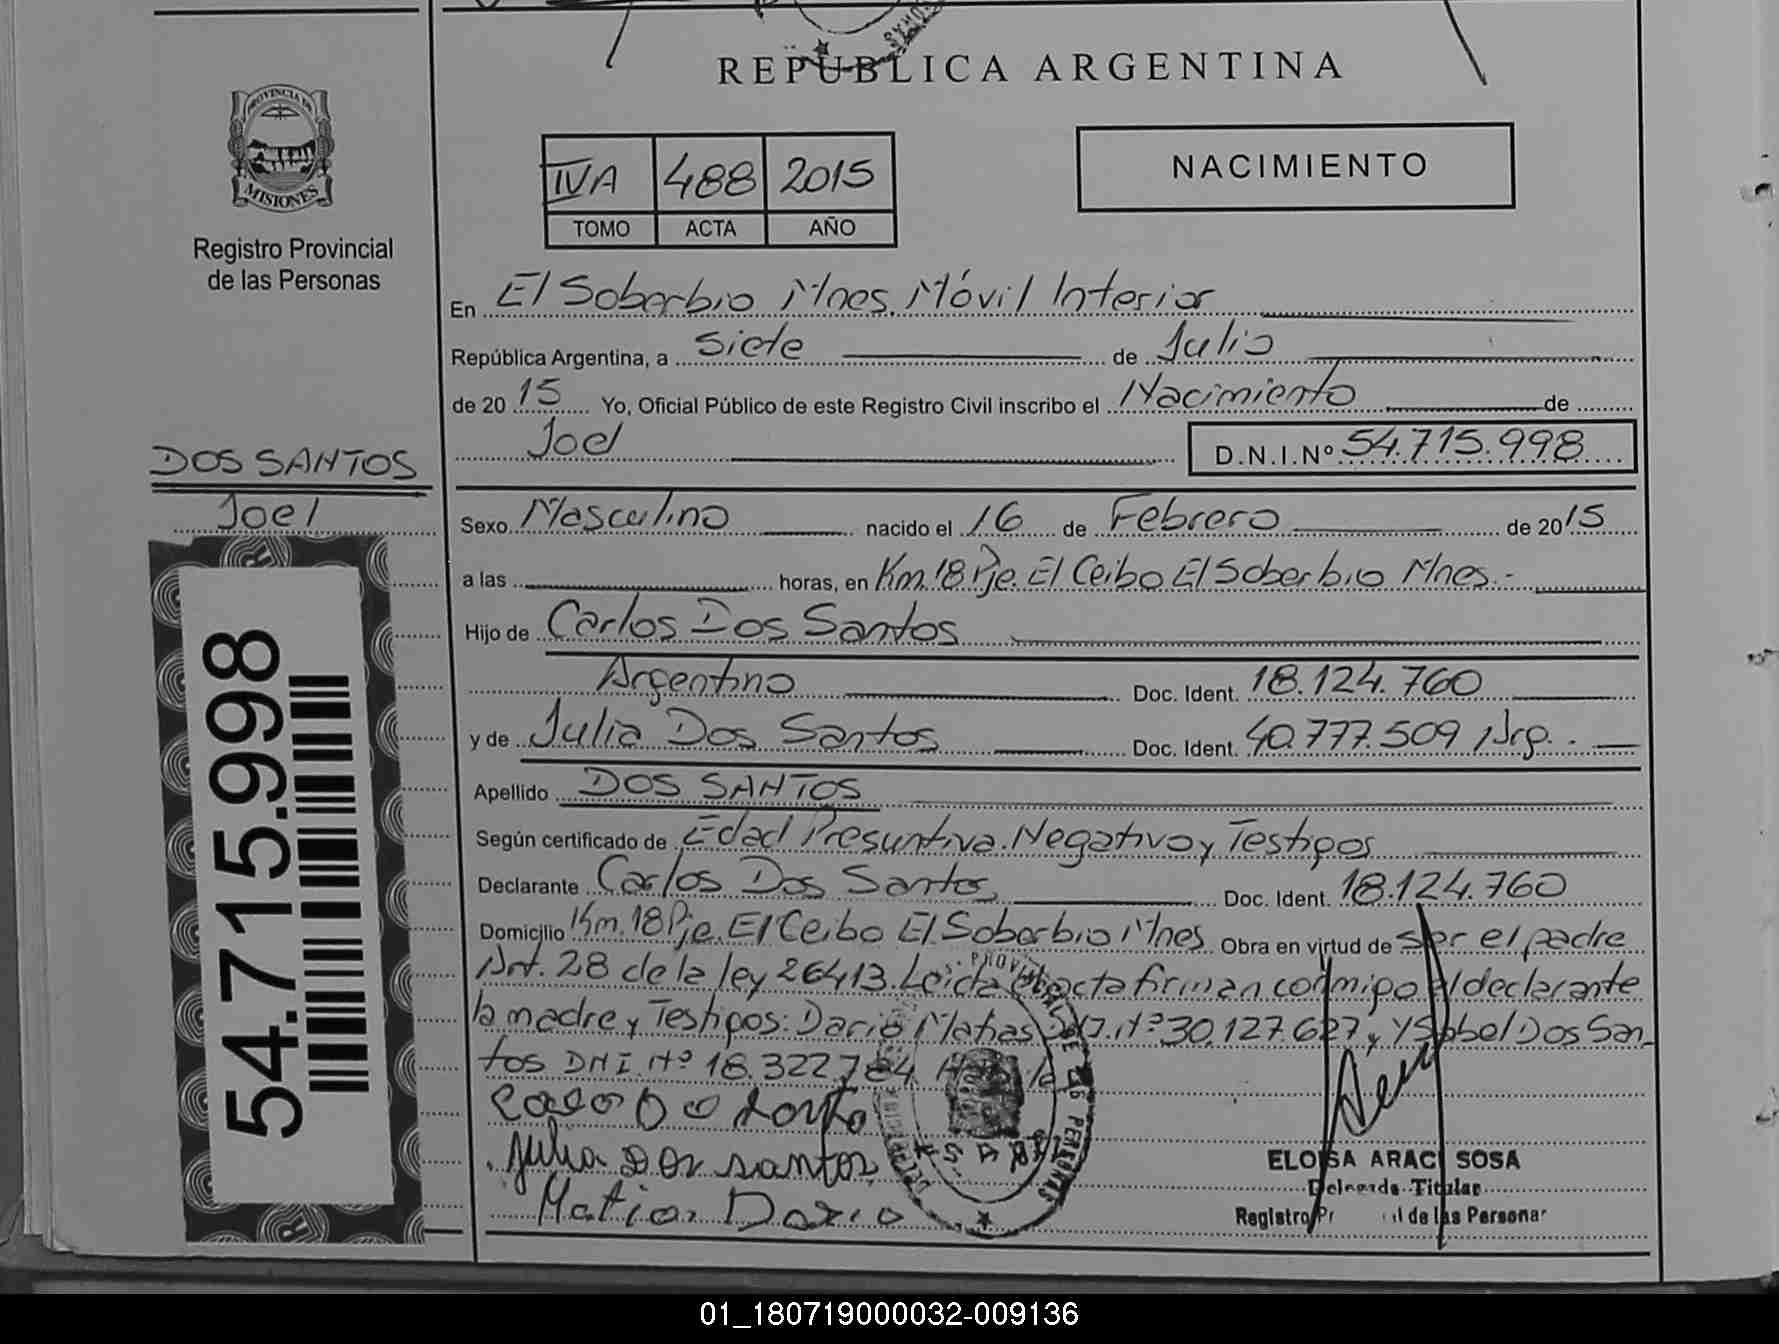 REPUBLICA ARGENTINA
PROVINCIA DE
MISIONES
Registro Provincial
de las Personas
IVA 488 2015
TOMO ACTA AÑO
NACIMIENTO
En El Soberbio Mnes. Móvil Interior
República Argentina, a siete de Julio
de 2015 Yo, Oficial Público de este Registro Civil inscribo el Nacimiento de
Joel D.N.I.Nº 54.715.998
DOS SANTOS
Joel
54.715.998
Sexo Masculino nacido el 16 de Febrero de 2015
a las horas, en Km.18 Pje. El Ceibo El Soberbio Mnes.-
Hijo de Carlos Dos Santos
Argentino Doc. Ident. 18.124.760
y de Julia Dos Santos Doc. Ident. 40.777.509 Arg.
Apellido DOS SANTOS
Según certificado de Edad Presuntiva. Negativo y Testigos
Declarante Carlos Dos Santos Doc. Ident. 18.124.760
Domicilio Km.18 Pje. El Ceibo El Soberbio Mnes Obra en virtud de ser el padre
Art. 28 de la ley 26413. Leida el acta firman conmigo el declarante
la madre y Testigos: Dario Matias D.N.I. Nº 30.127.627 y Ysabel Dos San
tos DNI. Nº 18.322.784
Dos
Julia Dos santos
Matias Dario
ELOISA ARACI SOSA
Delegada Titular
Registro de las Personas
01_180719000032-009136